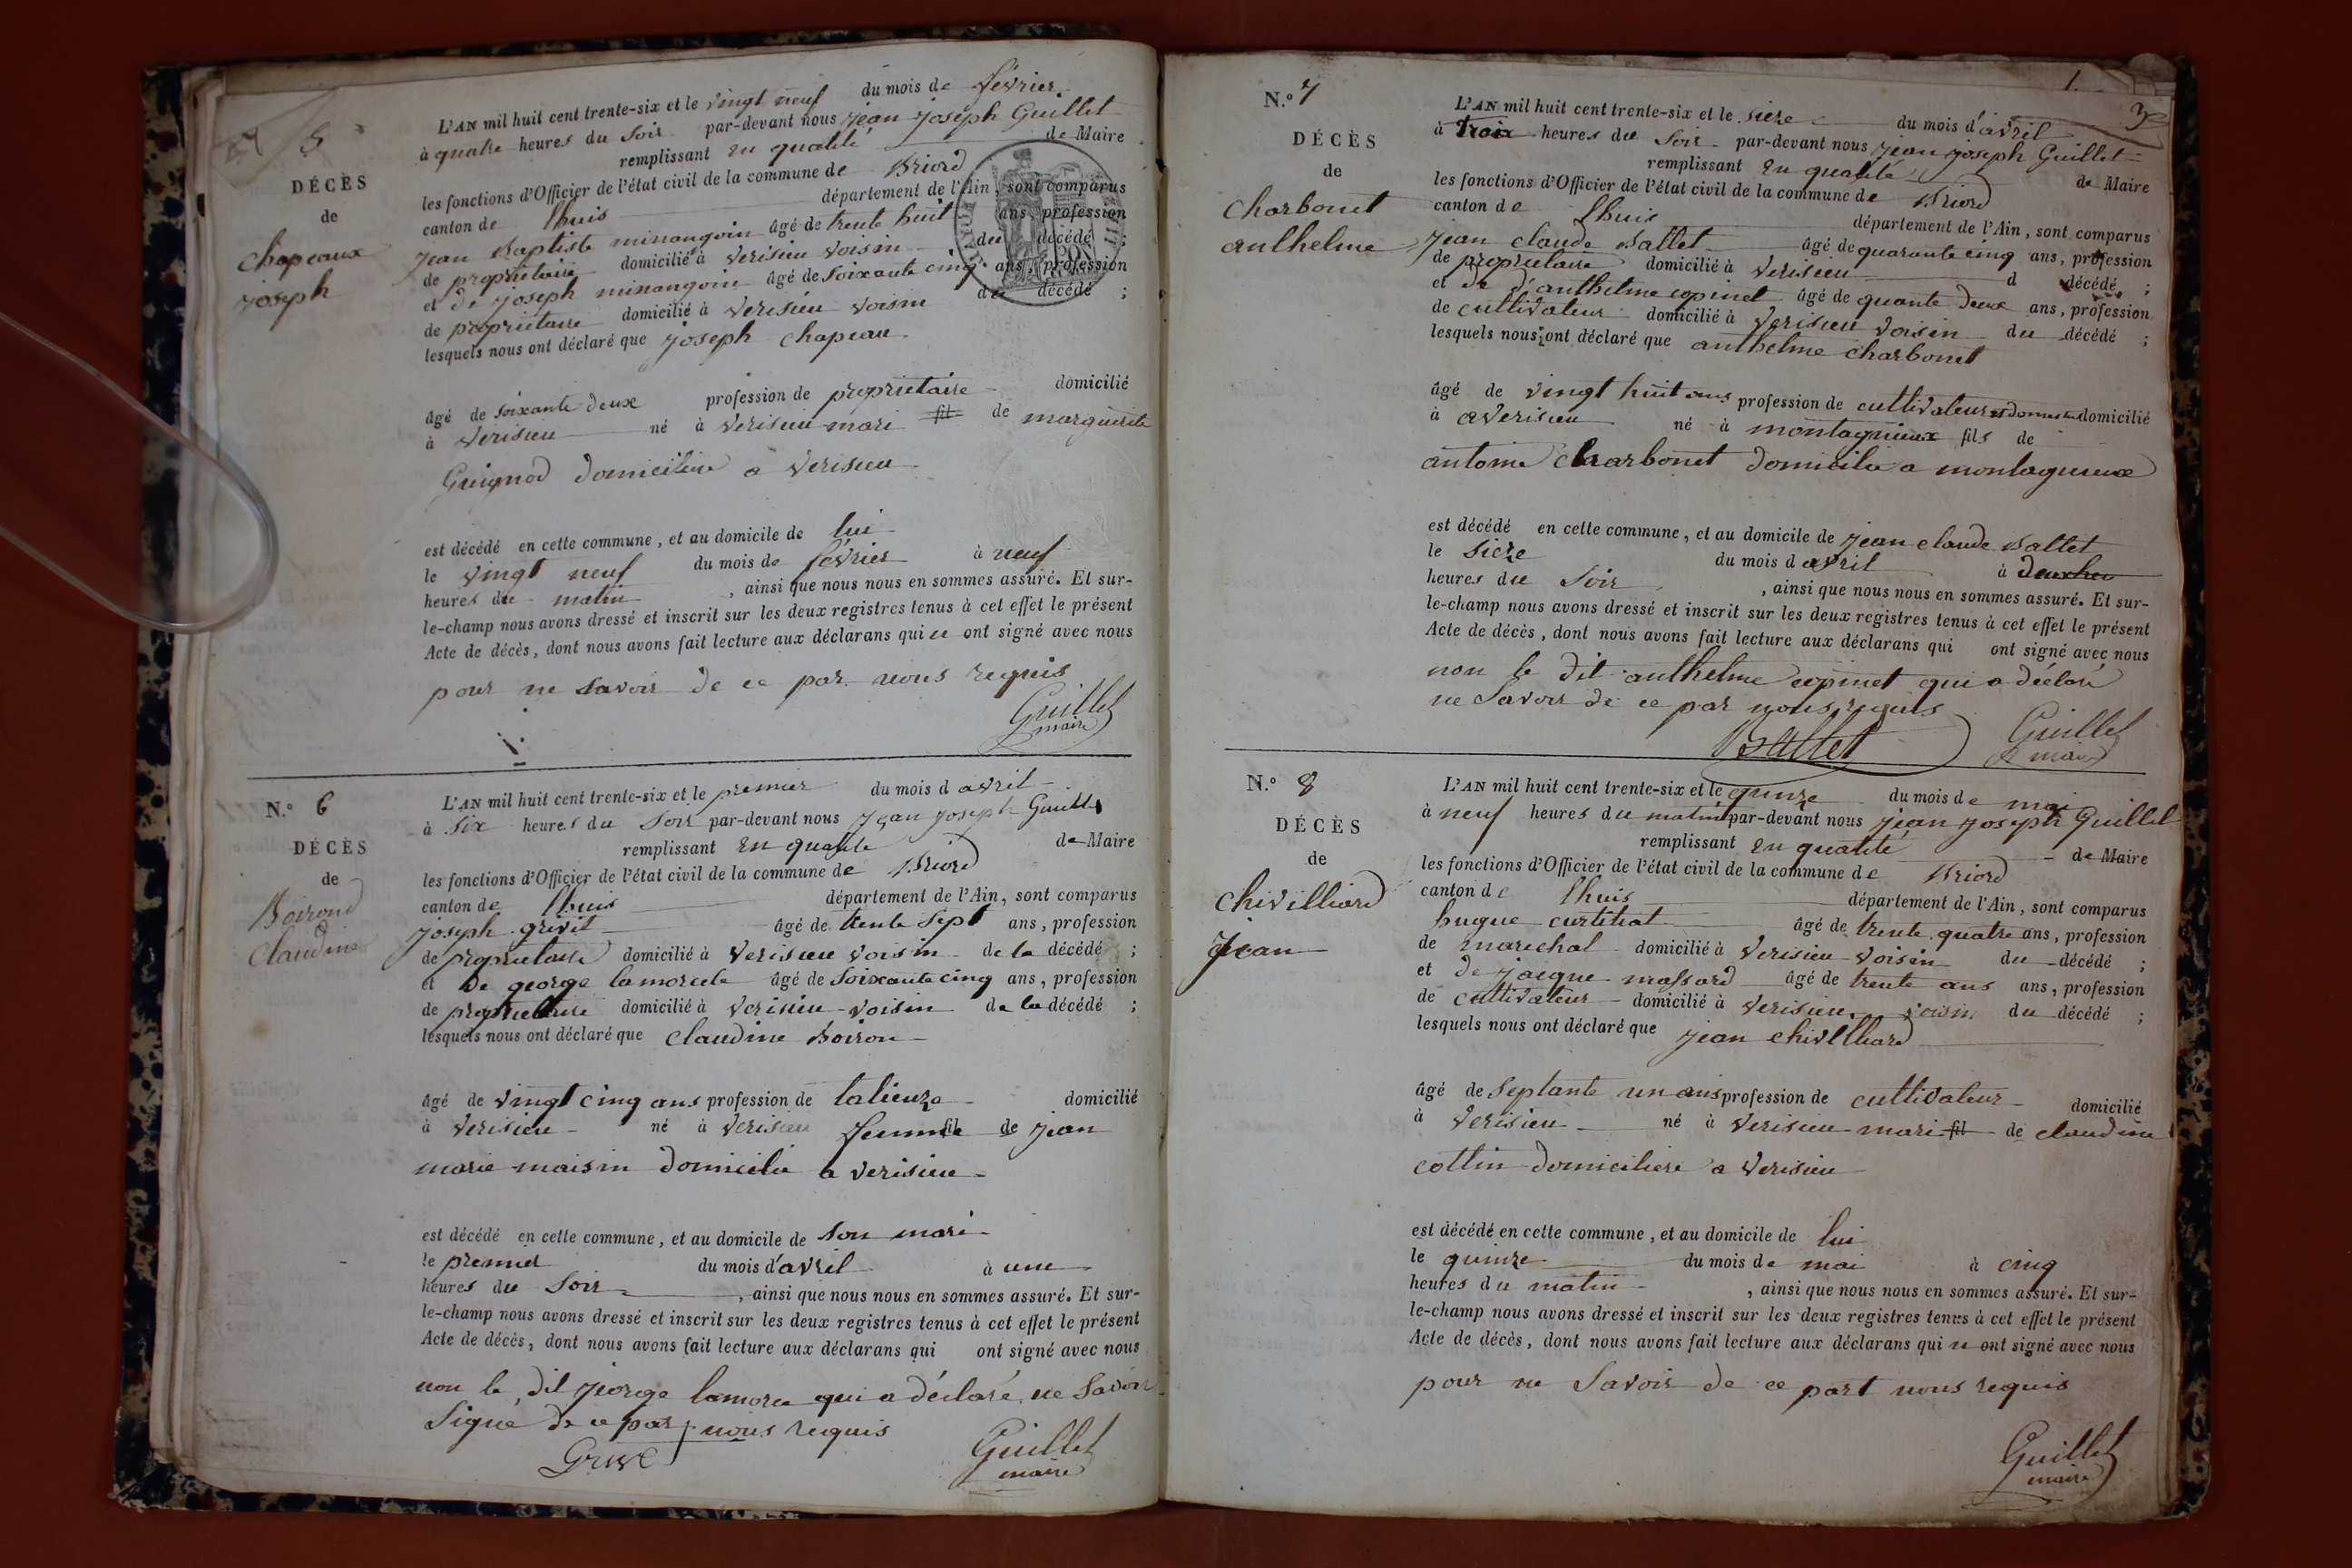 5
DÉCÈS
de
Chapeaux
joseph
L'AN mil huit cent trente-six et le vingt neuf du mois de février
à quatre heures du soir par-devant nous jean joseph Guillet
remplissant en qualité de Maire
les fonctions d'Officier de l'état civil de la commune de Briord
canton de lhuis département de l'Ain, sont comparus
jean Baptiste minangoin âgé de trente huit ans, profession
de propriétaire domicilié à Verisieu voisin du décédé ;
et de joseph minangoin âgé de soixante cinq ans, profession
de propriétaire domicilié à Verisieu voisin du décédé ;
lesquels nous ont déclaré que joseph chapeau
âgé de soixante deux profession de propriétaire domicilié
à Verisieu né à Verisieu mari fil de marguerite
Guignod domiciliée a Verisieu
est décédé en cette commune, et au domicile de lui
le vingt neuf du mois de février à neuf
heures du matin , ainsi que nous nous en sommes assuré. Et sur-
le-champ nous avons dressé et inscrit sur les deux registres tenus à cet effet le présent
Acte de décès, dont nous avons fait lecture aux déclarans qui n ont signé avec nous
pour ne savoir de ce par nous requis
Guillet
maire
N.° 6
DÉCÈS
de
Boirond
Claudine
L'AN mil huit cent trente-six et le premier du mois d avril
à six heures du soir par-devant nous jean joseph Guillet
remplissant en qualité de Maire
les fonctions d'Officier de l'état civil de la commune de Briord
canton de lhuis département de l'Ain, sont comparus
joseph grivit âgé de trente sept ans, profession
de propriétaire domicilié à Verisieu voisin de la décédé ;
et de george lamorele âgé de soixante cinq ans, profession
de propriétaire domicilié à Verisieu voisin de la décédé ;
lesquels nous ont déclaré que claudine Boiron
âgé de vingt cinq ans profession de talieuze domicilié
à Verisieu né à Verisieu femme fil de jean
marie maisin domicilié a verisieu
est décédé en cette commune, et au domicile de son mari
le premier du mois d'avril à une
heures du soir , ainsi que nous nous en sommes assuré. Et sur-
le-champ nous avons dressé et inscrit sur les deux registres tenus à cet effet le présent
Acte de décès, dont nous avons fait lecture aux déclarans qui ont signé avec nous
non le dit jiorge lamore qui a déclaré ne savoir
signé de ce par nous requis
Guillet
maire
3
N.° 7
DÉCÈS
de
Charbonet
anthelme
L'AN mil huit cent trente-six et le size du mois d'avril
à trois heures du soir par-devant nous jean joseph Guillet
remplissant en qualité de Maire
les fonctions d'Officier de l'état civil de la commune de Briord
canton de lhuis département de l'Ain, sont comparus
jean claude Ballet âgé de quarante cinq ans, profession
de propriétaire domicilié à Verisieu d décédé ;
et de d'anthelme copinet âgé de quante deux ans, profession
de cultivateur domicilié à Verisieu voisin du décédé ;
lesquels nous ont déclaré que anthelme charbonet
âgé de vingt huit ans profession de cultivateur domicilié
à a verisieu né à montagnieux fils de
antoine charbonet domicilié a montagnieux
est décédé en cette commune, et au domicile de jean claude Ballet
le size du mois d avril à deux heu
heures du soir , ainsi que nous nous en sommes assuré. Et sur-
le-champ nous avons dressé et inscrit sur les deux registres tenus à cet effet le présent
Acte de décès, dont nous avons fait lecture aux déclarans qui ont signé avec nous
non le dit anthelme copinet qui a déclaré
ne savoir de ce par nous requis
Ballet
Guillet
maire
N.° 8
DÉCÈS
de
chivilliard
jean
L'AN mil huit cent trente-six et le quinze du mois de mai
à neuf heures du matin par-devant nous jean joseph Guillet
remplissant en qualité de Maire
les fonctions d'Officier de l'état civil de la commune de Briord
canton de lhuis département de l'Ain, sont comparus
hugue curtitiat âgé de trente quatre ans, profession
de marechal domicilié à Verisieu voisin du décédé ;
et de jacque massard âgé de trente ans ans, profession
de cultivateur domicilié à Verisieu voisin du décédé ;
lesquels nous ont déclaré que jean chivilliard
âgé de septante un ans profession de cultivateur domicilié
à Verisieu né à Verisieu mari fil de claudine
cottin domiciliere a Verisieu
est décédé en cette commune, et au domicile de lui
le quinze du mois de mai à cinq
heures du matin , ainsi que nous nous en sommes assuré. Et sur-
le-champ nous avons dressé et inscrit sur les deux registres tenus à cet effet le présent
Acte de décès, dont nous avons fait lecture aux déclarans qui n ont signé avec nous
pour ne savoir de ce part nous requis
Guillet
maire